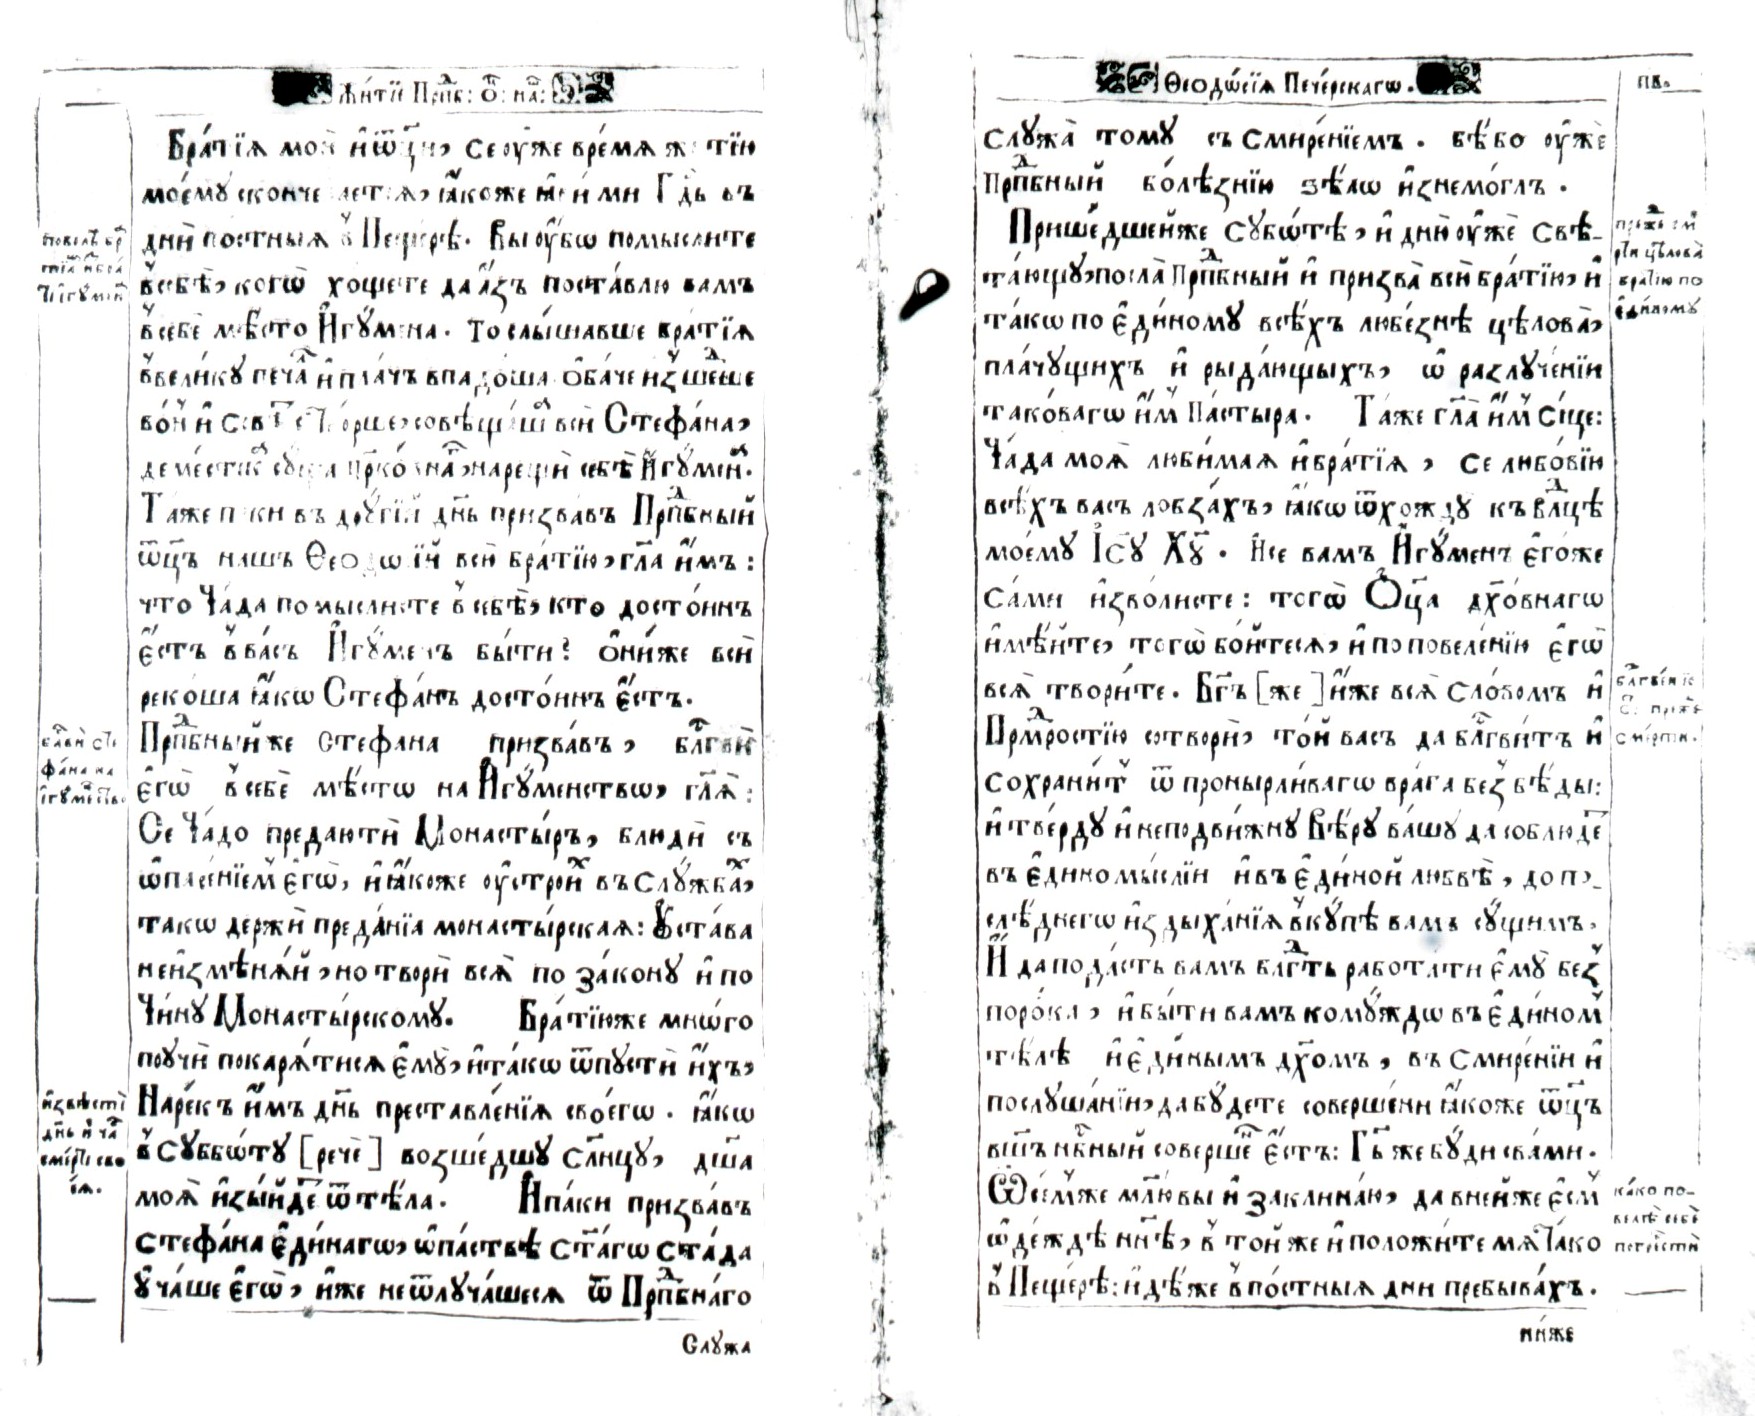 Жи́тїе Прпⷣб: Ѻ҃: на́:
Бра́тїѧ моѧ̀ и҆ ѿц҃и, се оу҆́же вре́мѧ
моемꙋ̀ ꙗ҆́коже ми Гдⷭ҇ь въ
дни̑ по́стныѧ в̾ Пеще́рѣ. Вы оу҆̀бѡ помы́слите
в̾ себѣ̀, кого̀ хо́щете да а҆́зъ поста́влю ва́мъ
в̾ себє̀ мѣ́сто И҆гꙋ́мена. То слы́шавше бра́тїѧ
в̾ вели́кꙋ печа́ⷧ и҆ пла́чъ впадо́ша. Ѻ҆ба́че и҆з̾ше́ⷣше
во́н̾ и҆ всѝ Стефа́на,
нарещѝ себѣ̀ И҆гꙋ́менⷨ.
Та́же па́ки въ дрꙋгі́й дн҃ь призва́въ Прпⷣбный
ѿц҃ъ нашъ Ѳеодѡ́сїй всю̀ бра́тїю, гл҃а и҆̀мъ:
что̀ Ча́да помы́слисте в̾ себѣ̀, кто̀ досто́инъ
є҆́стъ в̾ ва́съ И҆гꙋ́менъ бы́ти? ѻ҆ни́же всѝ
реко́ша ꙗ҆́кѡ Стефа́нъ досто́инъ є҆́стъ.
Прпⷣбный же Стефа́на призва́въ, блⷭ҇гвѝ
є҆гѡ̀ в̾ себє̀ мѣ́стѡ на И҆гꙋ́менствѡ, гл҃ѧ:
Се Ча́до предаю́ ти̑ Монасты́ръ, блюдѝ съ
ѡ҆пасе́нїемъ є҆гѡ̀, и҆ ꙗ҆́коже оу҆стро́иⷯ въ Слꙋ́жбаⷯ,
та́кѡ держѝ преда́нїѧ монасты́рскаѧ: Оу҆ста́ва
не и҆змѣнѧ́й, но творѝ всѧ̀ по зако́нꙋ и҆ по
Чи́нꙋ Монасты́рскомꙋ. Бра́тїю же мнѡ́го
поꙋчѝ покарѧ́тисѧ є҆мꙋ̀, и҆ та́кѡ ѿпꙋстѝ и҆́хъ,
Наре́къ и҆̀мъ дн҃ь преставле́нїѧ своегѡ̀. ꙗ҆́кѡ
в̾ Сꙋббѡ́тꙋ [речѐ] возше́дшꙋ Сл҃нцꙋ, дш҃а
моѧ̀ и҆зы́йде ѿ тѣ́ла. И҆ па́ки призва́въ
Стефа́на є҆ди́нагѡ, ѡ҆ па́ствѣ Ст҃а́гѡ ста́да
оу҆ча́ше є҆гѡ̀, и҆́же не ѿлꙋча́шесѧ ѿ Прпⷣбна́го
Слꙋжа
є҆́ⷧвѝ Сте
фа́на на
и҆гꙋ́мⷭ҇тво
и҆звѣстѝ
дн҃ь и҆ ча́ⷭ
сме́рти сво
е́ѧ.
Ѳеодѡ́сїѧ Пече́рскагѡ.
пв.
слꙋжа̀ томꙋ̀ съ смире́нїемъ. бѣ́ бо оу҆жѐ
Прпⷣбный болѣ́знїю зѣлѡ̀ и҆знемо́глъ.
Прише́дшей же Сꙋбѡ́тѣ, и҆ дню̀ оу҆жѐ свѣ-
та́ющꙋ, посла̀ Прпⷣбный и҆ призва̀ всю̀ бра́тїю, и҆
та́кѡ по є҆ди́номꙋ всѣ́хъ любе́знѣ цѣлова̀,
пла́чꙋщихъ и҆ рыда́ющыхъ, ѡ҆ разлꙋче́нїи
тако́вагѡ и҆̀м̾ Па́стыра. Та́же гл҃а и҆̀м̾ си́це:
Ча́да моѧ̀ люби́маѧ и҆ бра́тїѧ, се любо́вїю
всѣ́хъ ва́съ лобза́хъ, ꙗ҆́кѡ ѿхождꙋ̀ къ влⷣцѣ
моемꙋ̀ І҆с҃ꙋ Хꙋ҃. И҆ се ва́мъ И҆гꙋ́менъ є҆го́же
са́ми и҆зво́листе: тогѡ̀ Ѻ҆ц҃а дх҃о́внагѡ
и҆мѣ́йте, тогѡ̀ бо́йтесѧ, и҆ по повеле́нїю є҆гѡ̀
всѧ̀ твори́те. Бг҃ъ [же] и҆́же всѧ̀ сло́вомъ и҆
Прмⷣростїю сотворѝ, то́й ва́съ да блⷭ҇гви́тъ и҆
сохрани́т̾ ѿ проныри́вагѡ врага̀ без̾ бѣды̀:
и҆ тве́рдꙋ и҆ неподви́жнꙋ Вѣ́рꙋ ва́шꙋ да соблюде́т
въ є҆диномы́слїи и҆ въ є҆ди́ной любвѐ, до по-
слѣ́днегѡ и҆здыха́нїѧ в̾кꙋ́пѣ ва́мъ сꙋ́щимъ.
И҆ да пода́стъ ва́мъ блгⷣть рабо́тати є҆мꙋ̀ без̾
поро́ка, и҆ бы́ти ва́мъ комꙋ́ждѡ въ є҆ди́ном̾
тѣ́лѣ и҆ є҆ди́нымъ дх҃омъ, въ смире́нїи и҆
послꙋша́нїи, да бꙋ́дете соверше́ни ꙗ҆́коже ѿц҃ъ
ва́шъ нб҃ный соверше́нъ є҆́стъ: Гдⷭ҇ь же бꙋ́ди сва́ми.
Ѽ се́м̾же млю́ вы и҆ заклина́ю, да в ней же є҆́см̾
ѡ҆де́ждѣ нн҃ѣ, в̾ то́й же и҆ положи́те мѧ̀. Та́ко
в̾ Пеще́рѣ: и҆дѣ́же в̾ по́стныѧ дни̑ пребыва́хъ.
ни́же
пре́жⷣе см
рти цѣлова̀
бра́тїю по
є҆ди́номꙋ
сме́рти.
ка́ко по-
велѣ̀ себѐ
погрестѝ